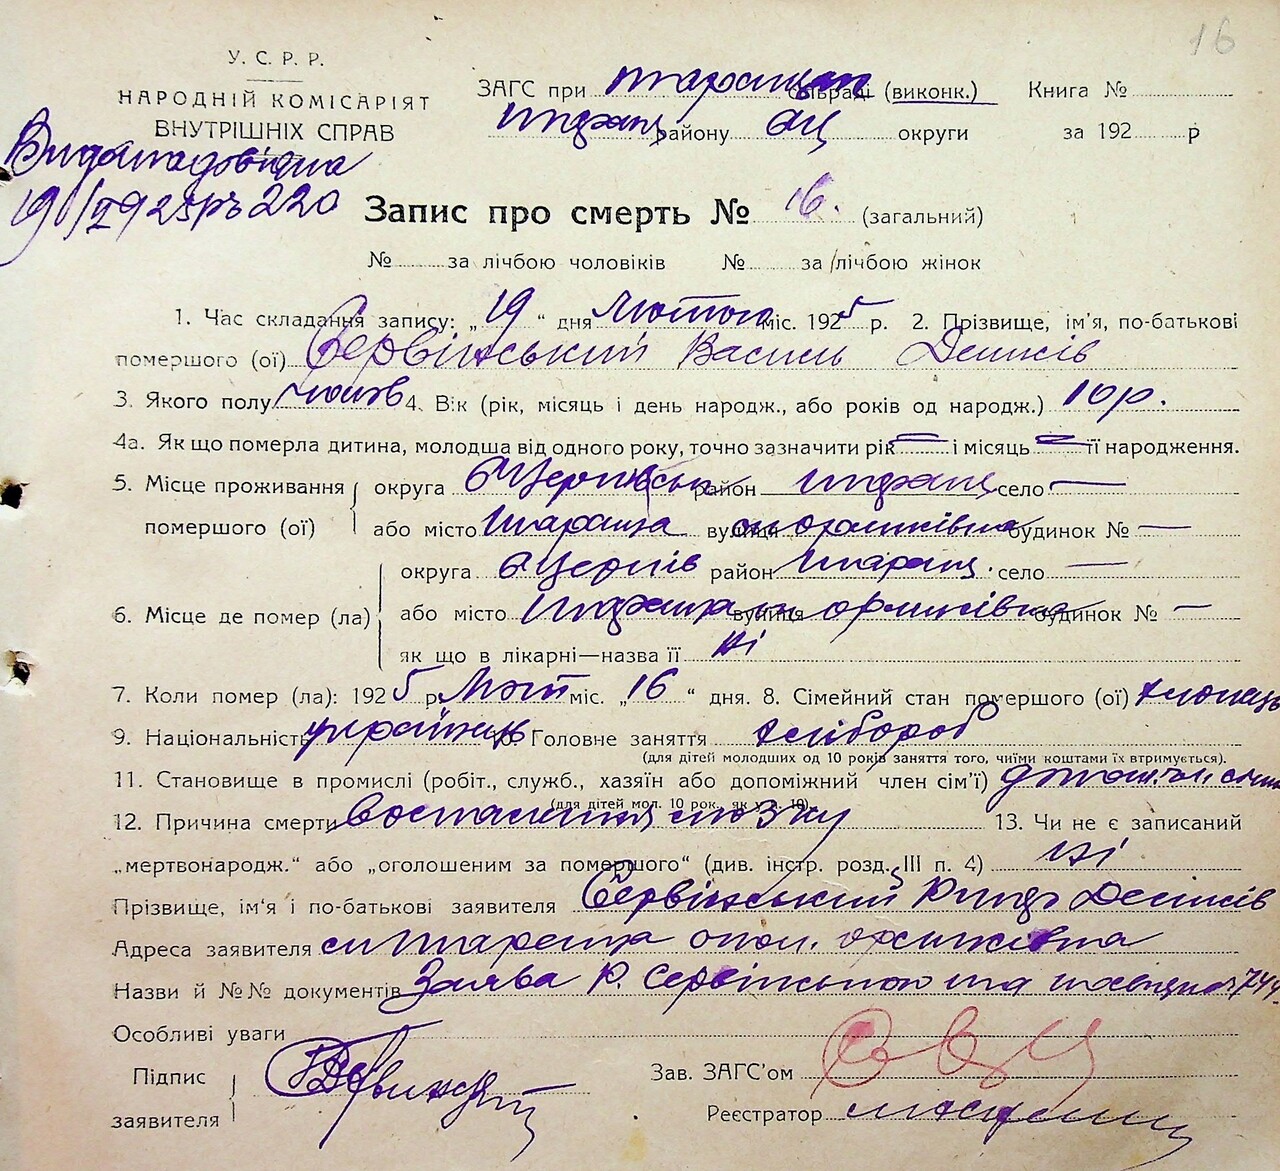 16
У. С. Р. Р.
НАРОДНІЙ КОМІСАРІЯТ
ВНУТРІШНІХ СПРАВ
ЗАГС при сільраді (виконк.) Книга №
району БЦ округи за 192 р
19/II 925 р № 220
Запис про смерть № 16. (загальний)
№ за лічбою чоловіків № за лічбою жінок
1. Час складання запису: „19“ дня Лютого міс. 1925 р. 2. Прізвище, ім'я, по-батькові
помершого (ої) Сервінський Василь Денисів
3. Якого полу чолов 4. Вік (рік, місяць і день народж., або років од народж.) 10 р.
4а. Як що померла дитина, молодша від одного року, точно зазначити рік — і місяць — її народження.
5. Місце проживання помершого (ої)
округа БЦерківськ район Таращ село —
або місто Тараща вулиця будинок № —
6. Місце де помер (ла)
округа БЦерків район Таращ. село —
або місто Тараща вулиця будинок № —
як що в лікарні—назва її ні
7. Коли помер (ла): 1925 р Лют міс. „16“ дня. 8. Сімейний стан помершого (ої) хлопець
9. Національність українець 10. Головне заняття хлібороб
(для дітей молодших од 10 років заняття того, чиїми коштами їх втримується).
11. Становище в промислі (робіт., служб., хазяїн або допоміжний член сім'ї)
(для дітей мол. 10 рок., як у п. 10).
12. Причина смерти воспалення мозку 13. Чи не є записаний
„мертвонародж.“ або „оголошеним за помершого“ (див. інстр. розд. III п. 4) ні
Прізвище, ім'я і по-батькові заявителя Сервінський Денисів
Адреса заявителя м Тараща
Назви й №№ документів Заява Сервінського та 744
Особливі уваги
Підпис заявителя
Зав. ЗАГС'ом
Реєстратор